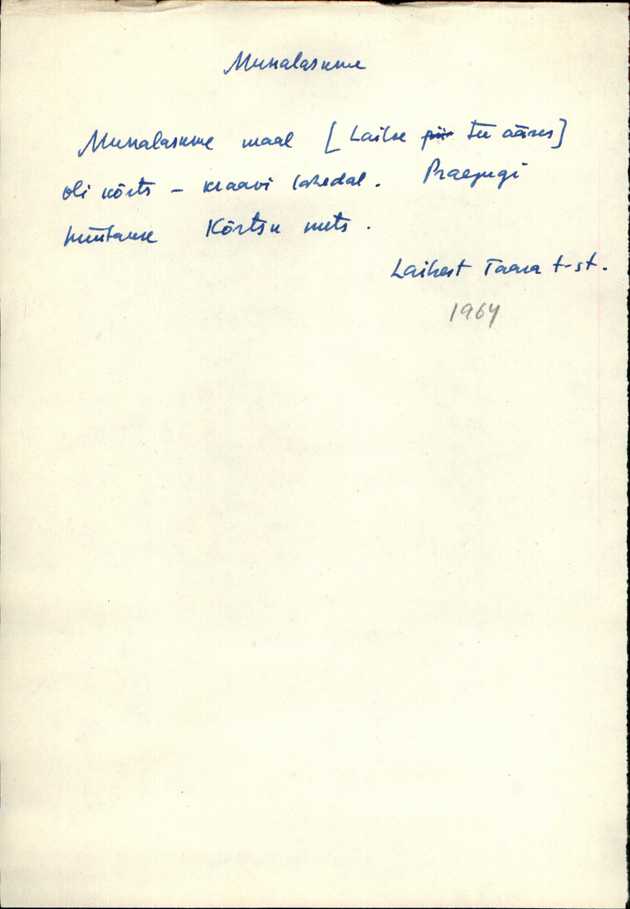 Munalaskme
Munalaskme maal [Laitse piir tee ääres]
oli kõrts – kraavi lähedal. Praegugi
hüütakse Kõrtsu mets.
Laitsest Taara t-st.
1964